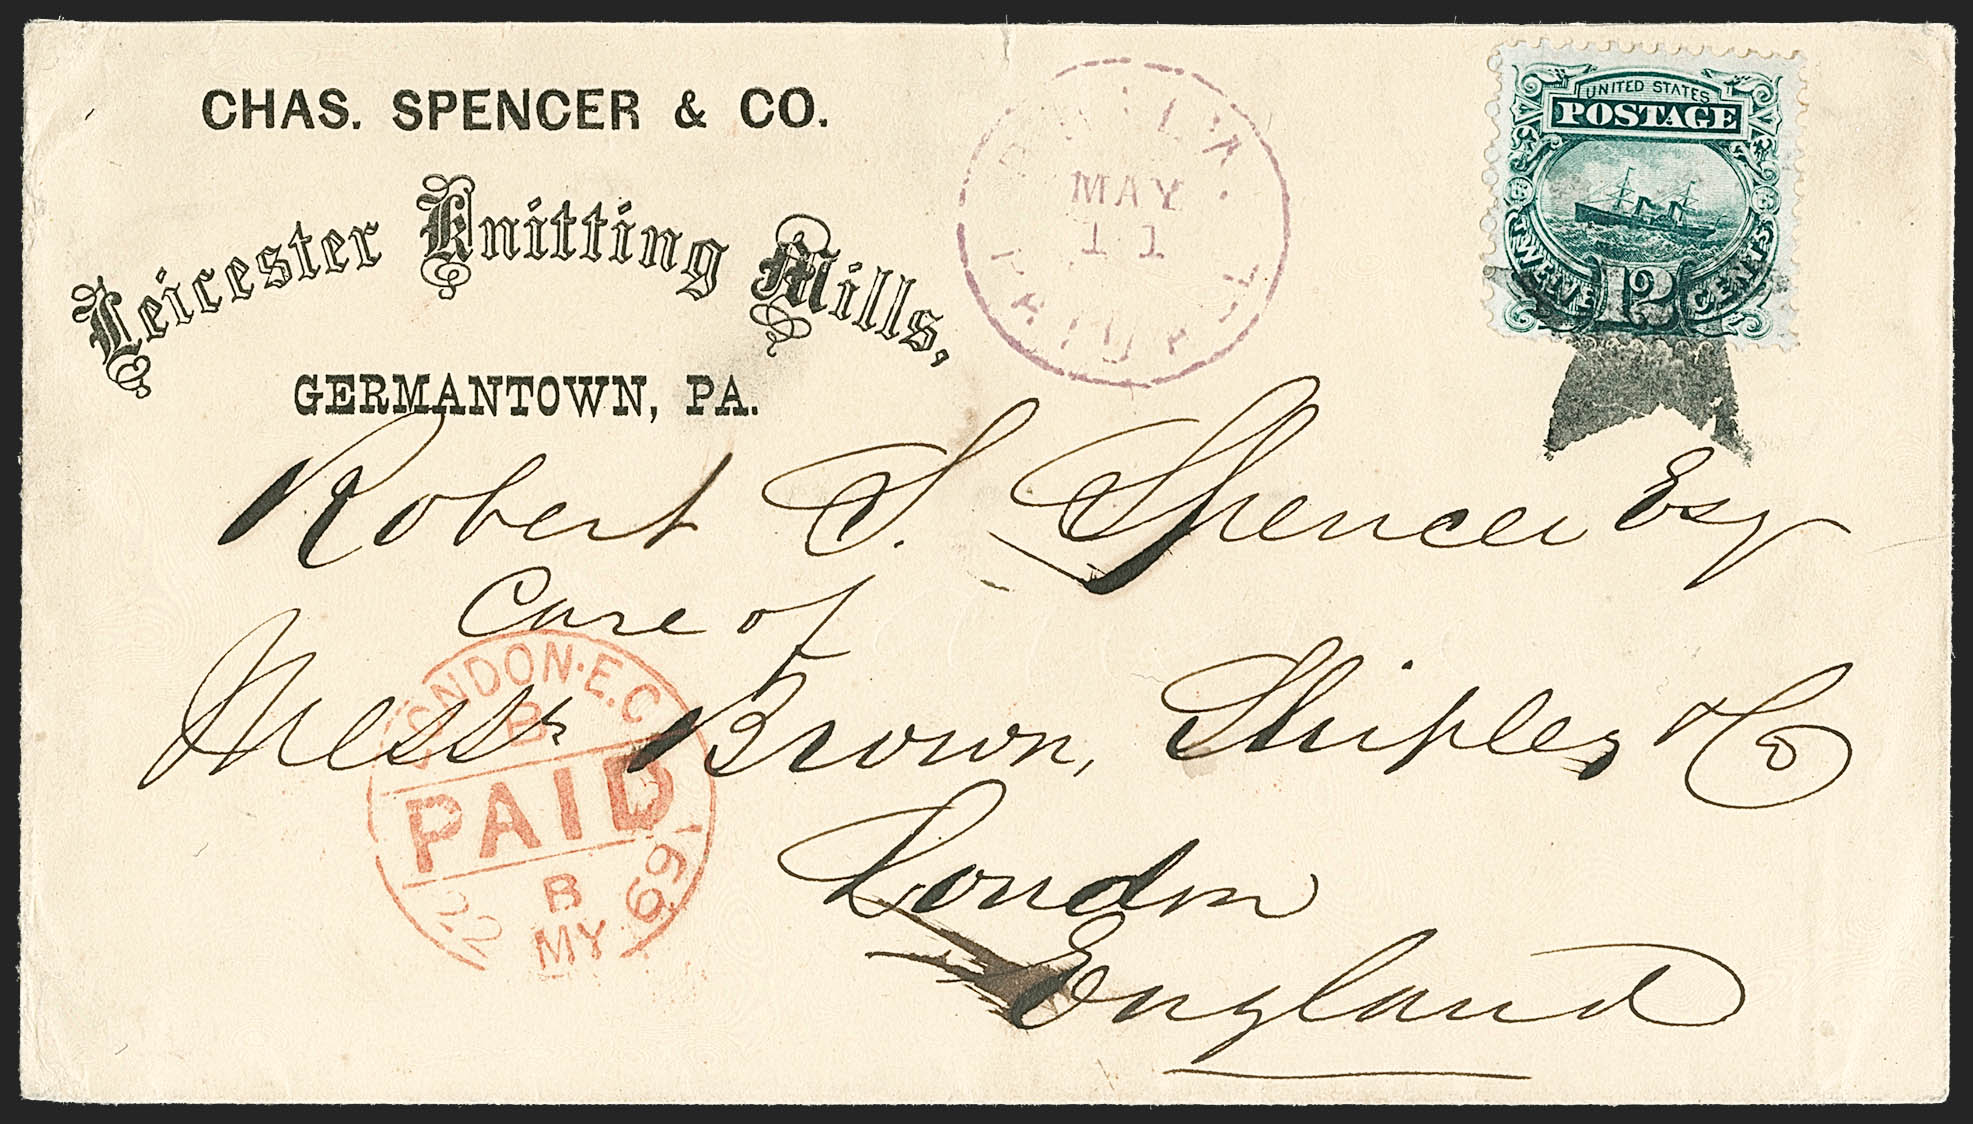 CHAS. SPENCER & CO.
Leicester Knitting Mills,
GERMANTOWN, PA.
MAY
11
UNITED STATES
POSTAGE
TWELVE 12 CENTS
Robert S. Spencer Esq
Care of
Messrs Brown, Shipley & Co
London
England
LONDON·E.C
B
PAID
22 B MY 69